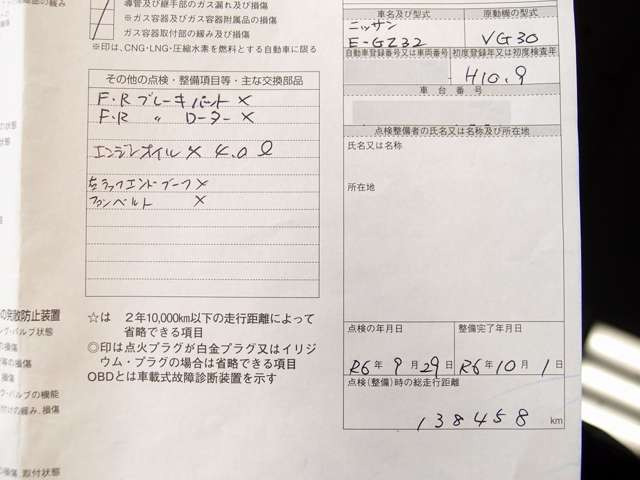 導管及び継手部のガス漏れ及び損傷
※ガス容器及びガス容器附属品の損傷
ガス容器取付部の緩み及び損傷
※印は、CNG・LNG・圧縮水素を燃料とする自動車に限る
その他の点検・整備項目等・主な交換部品
F・R ブレーキパット ×
F・R 〃 ローター ×
エンジンオイル × 4.0ℓ
ラックエンドブーツ ×
ファンベルト ×
☆は 2年10,000km以下の走行距離によって
省略できる項目
◎印は点火プラグが白金プラグ又はイリジ
ウム・プラグの場合は省略できる項目
OBDとは車載式故障診断装置を示す
車名及び型式
原動機の型式
ニッサン
E-GZ32
VG30
自動車登録番号又は車両番号
初度登録年又は初度検査年
H10.9
車台番号
点検整備者の氏名又は名称及び所在地
氏名又は名称
所在地
点検の年月日
整備完了年月日
R6年9月29日
R6年10月1日
点検(整備)時の総走行距離
138458 km
の状態
の発散防止装置
バルブ状態
の損傷
等の損傷
バルブの機能
付けの緩み、損傷
の損傷
取付状態